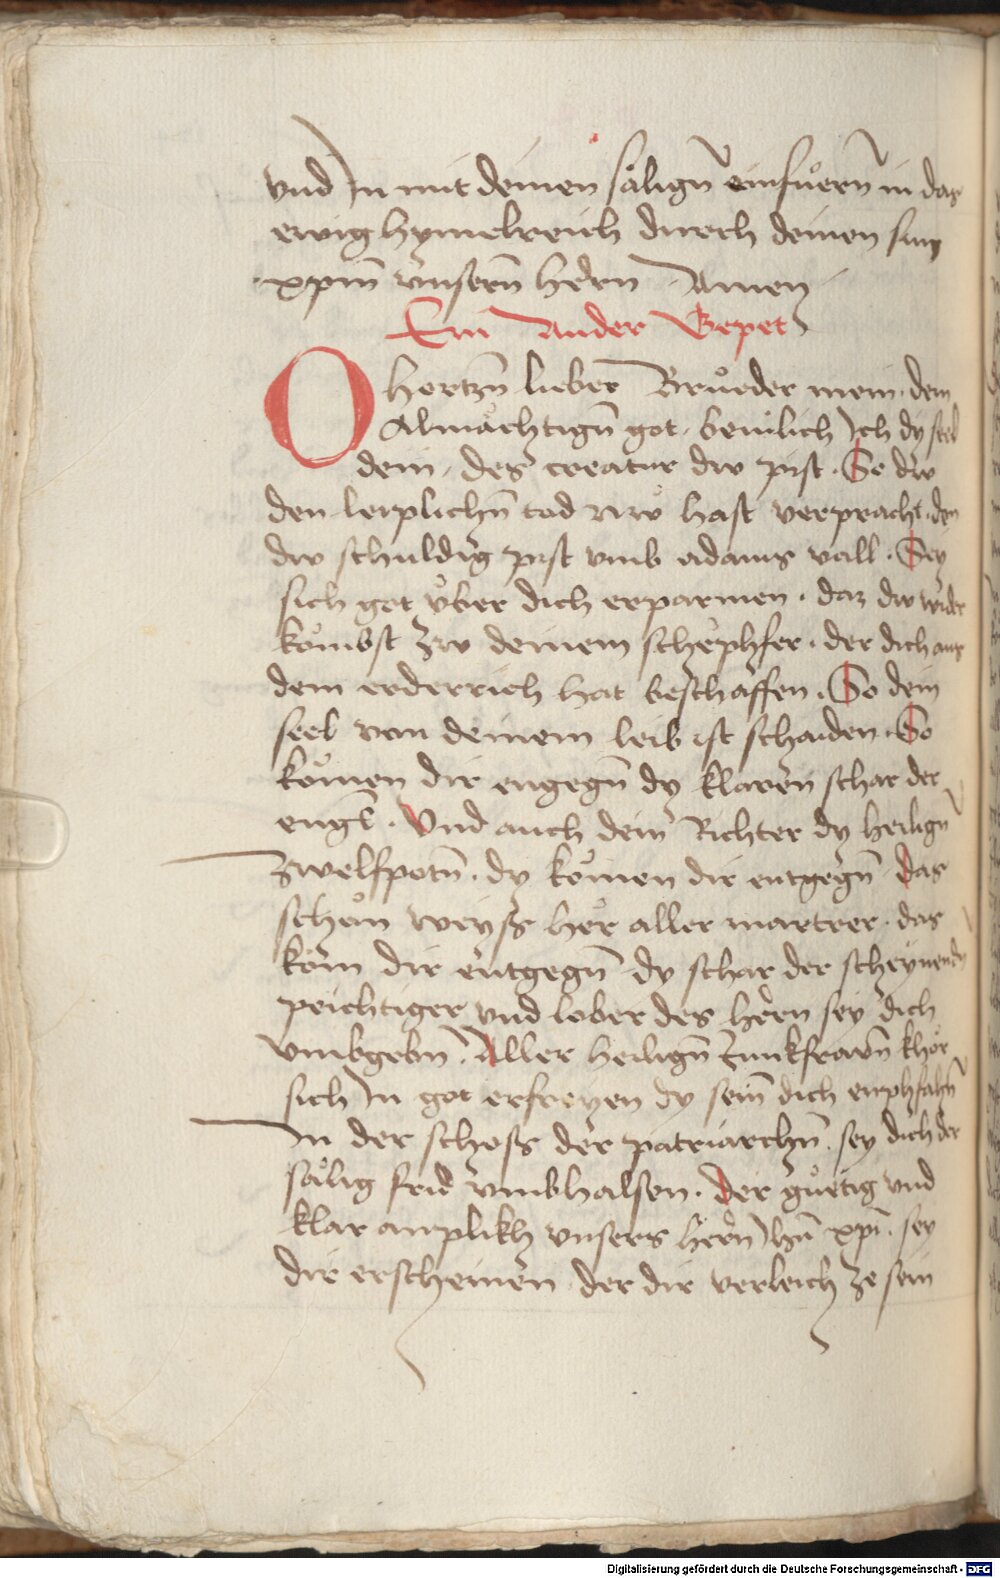 vnd In mit deinen såligñ einfuͦern̄ in das
ewig hymelreich durch deinen sun
xpm̄ vnsern̄ hern Amen
Ein Ander Gepet
O hertzn̄ lieber Bruͦeder mein dem
Almåchtigñ got beuilich Ich dy seel
dein des creatur dw pist So dw
den leiplichñ tod nw hast verpracht den
dw schuldig pist vmb adams vall Sey
sich got vͦber dich erparmen daz dw wider
kombst zw deinem schepfher der dich aus
dem erderrich hat beschaffen So dein
seel von deinem leib ist schaiden So
koͤmen dir engegñ dy klaren schar der
engl̄ Vnd auch dein Richter dy heiligñ
zwelfpotñ dy koͤmen dir entgegñ das
schoͤn weyß hoͤr aller martrer das
kom dir entgegñ dy schar der scheynendn
peichtiger vnd lober des herrn sey dich
vmbgebn Aller heiligñ Junkfrawñ khoͤr
sich In got erfreyen dy sein̄ dich enphahñ
In der schoss der patriarchñ sey dich der
sålig frid vmbhalsen Der guͤetig vnd
klar anplikh vnsers herrn Ihū xpi sey
dir erscheinen der dir verleich ze sein
Digitalisierung gefördert durch die Deutsche Forschungsgemeinschaft - DFG